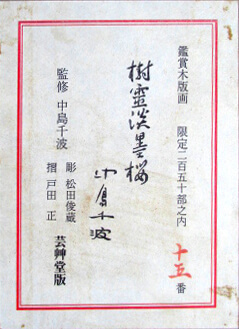 鑑賞木版画　限定二百五十部之内　十五番
樹靈淡墨桜
中島千波
監修　中島千波
彫　松田俊蔵
摺　戸田　正
芸艸堂版